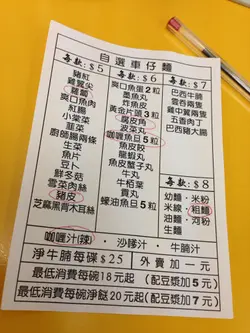 自選車仔麵
每款:$5
豬紅
雞翼尖
蘿蔔
爽口魚肉
紅腸
小棠菜
韮菜
廚師腸兩條
生菜
魚片
豆卜
鮮冬菇
雪菜肉絲
豬皮
芝麻黑膏木耳絲
每款:$6
爽口魚蛋2粒
墨魚丸
炸魚皮
黃金片頭3粒
腐皮角
菠菜丸
咖喱魚旦5粒
魚皮餃
龍蝦丸
魚皮蟹子丸
牛丸
牛栢葉
貢丸
蠔油魚旦5粒
每款:$7
巴西牛腩
雲吞兩隻
雞中翼兩隻
五香肉丁
巴西豬大腸
每款:$8
幼麵·米粉
米線·粗麵
油麵·河粉
生麵
咖喱汁(辣)、沙嗲汁、牛腩汁
淨牛腩每碟$25
外賣加一元
最低消費每碗18元起(配豆漿加7元)
最低消費每碗淨餸20元起(配豆漿加7元)